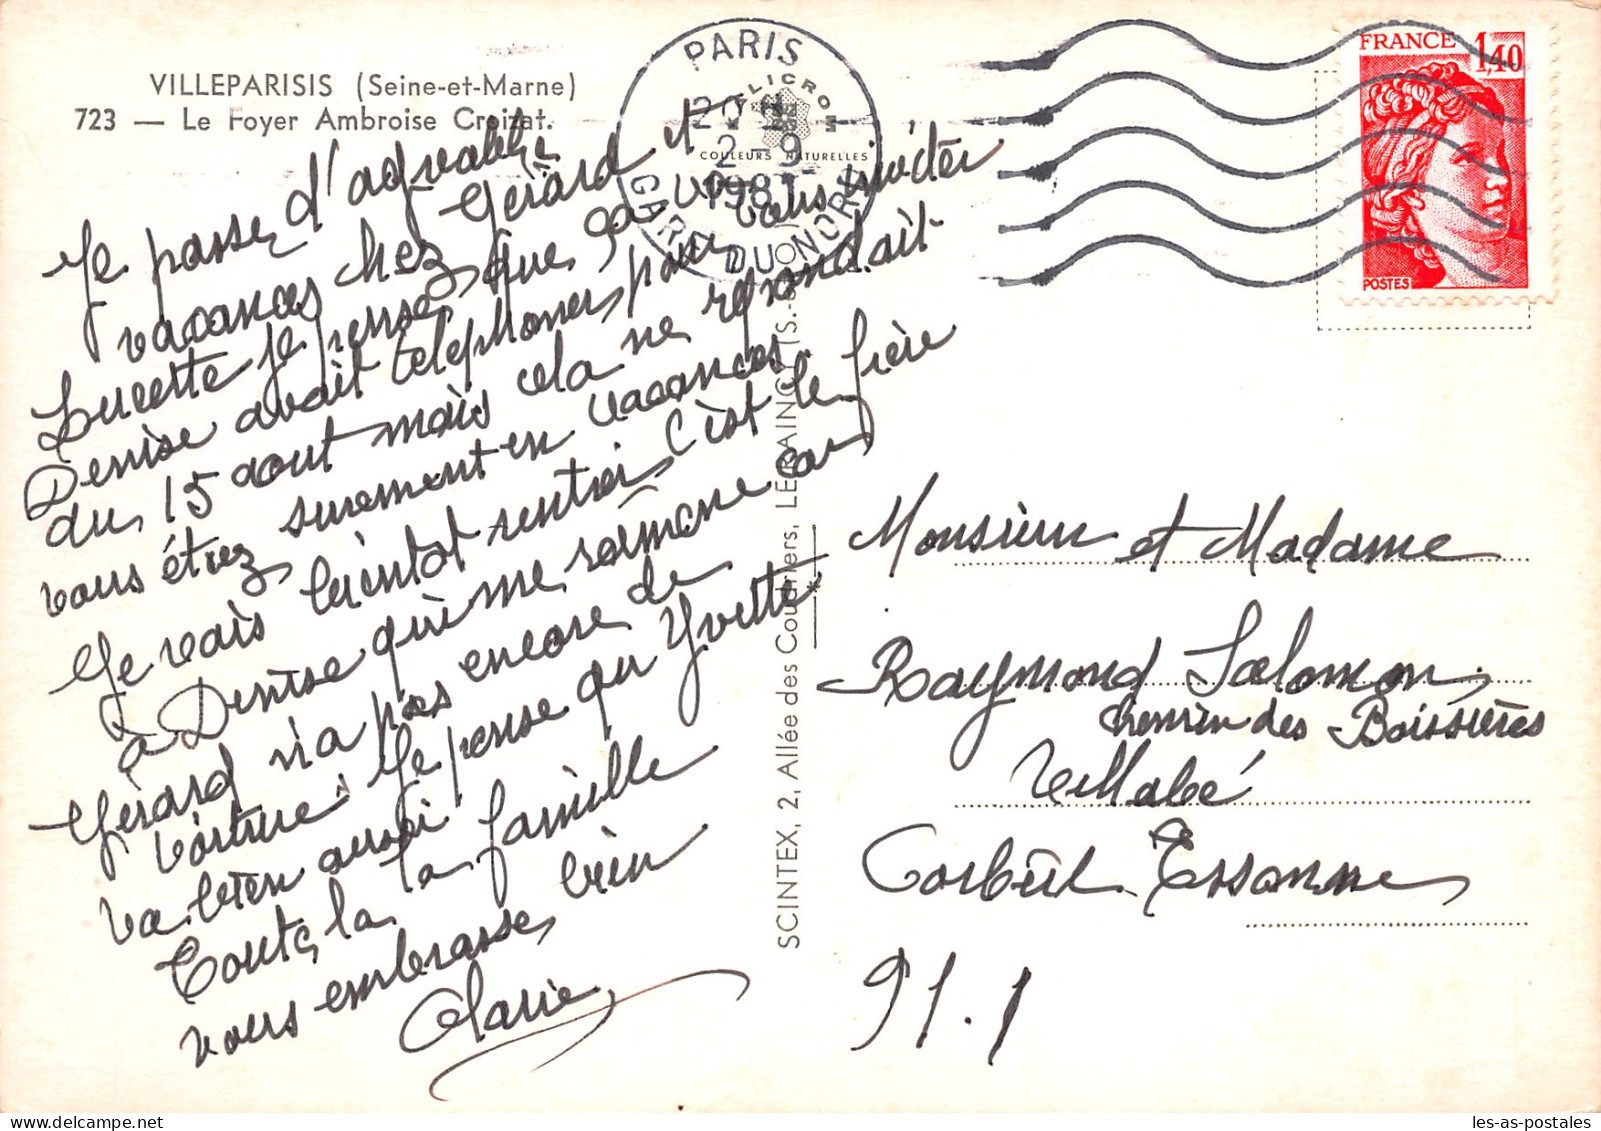 VILLEPARISIS (Seine-et-Marne)
723 — Le Foyer Ambroise Croizat.
Je passe d'agreables
vacances chez Gérard et
Lucette je pense que ça va
Denise avait telephoner pour vous inviter
du 15 aout mais cela ne repondait
vous étiez surement en vacances
Je vais bientot rentrer c'est le frère
à Denise qui me ramene car
Gérard n'a pas encore de
voiture Je pense qu Yvette
va bien aussi
Toute la famille
vous embrasse bien
PARIS
20 H
2-9
1981
GARE DU NORD
COULEURS NATURELLES
SCINTEX, 2, Allée des Coudriers, LE RAINCY (S.-
FRANCE 1,40
POSTES
Monsieur et Madame
Raymond Salomon
chemin des Boissières
Villabé
Corbeil Essonnes
91.1
les-as-postales